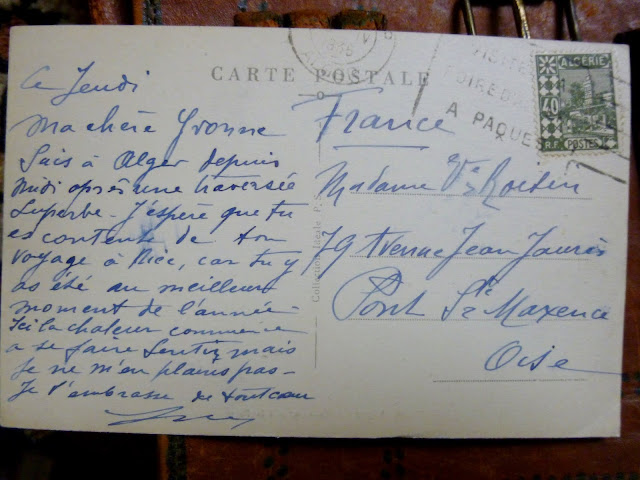 CARTE POSTALE
VISITE
FOIRE D'A
A PAQUES
ALGERIE
40
R.F. POSTES
Ce Jeudi
Ma chère Yvonne
Suis à Alger depuis
midi après une traversée
superbe - J'espère que tu
es contente de ton
voyage à Nice, car tu y
as été au meilleur
moment de l'année -
Ici la chaleur commence
a se faire sentir, mais
je ne m'en plains pas -
Je t'embrasse de tout coeur
France
Madame Vve
79 Avenue Jean Jaurès
Pont Ste Maxence
Oise
Collection Idéale P.S.